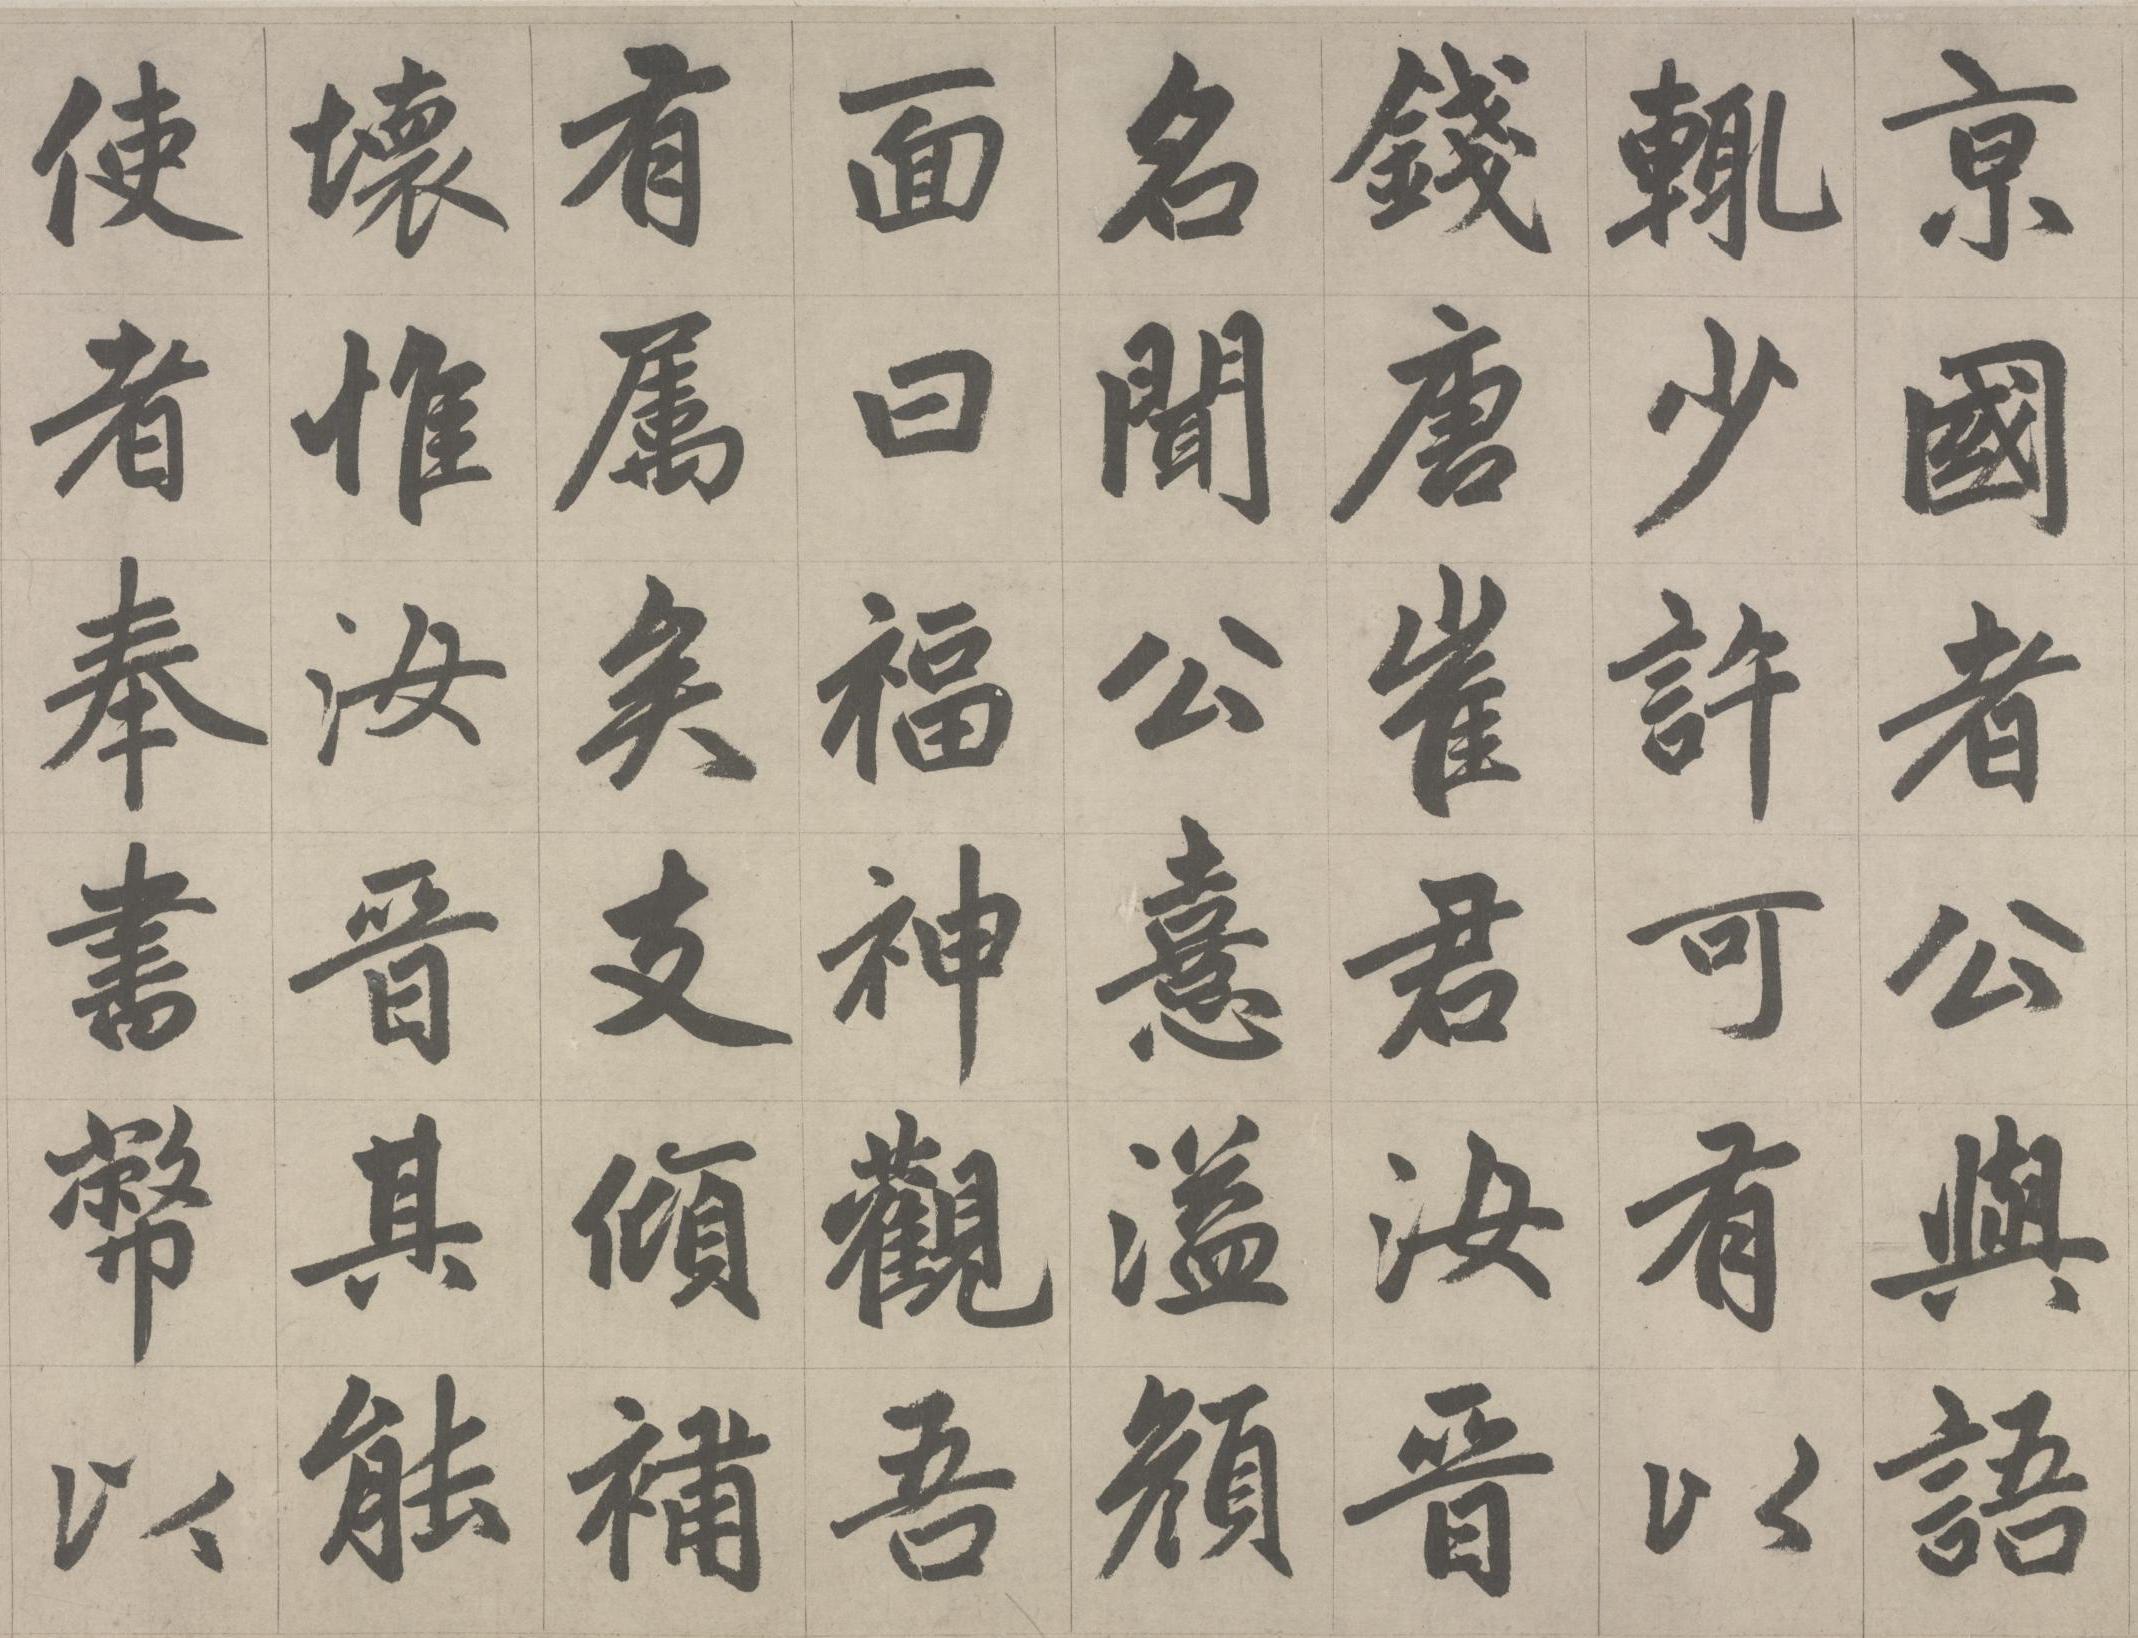 京國者公與語
輙少許可有以
錢唐崔君汝晉
名聞公憙溢顔
面曰福神觀吾
有属矣支傾補
壞惟汝晉其能
使者奉書幣以